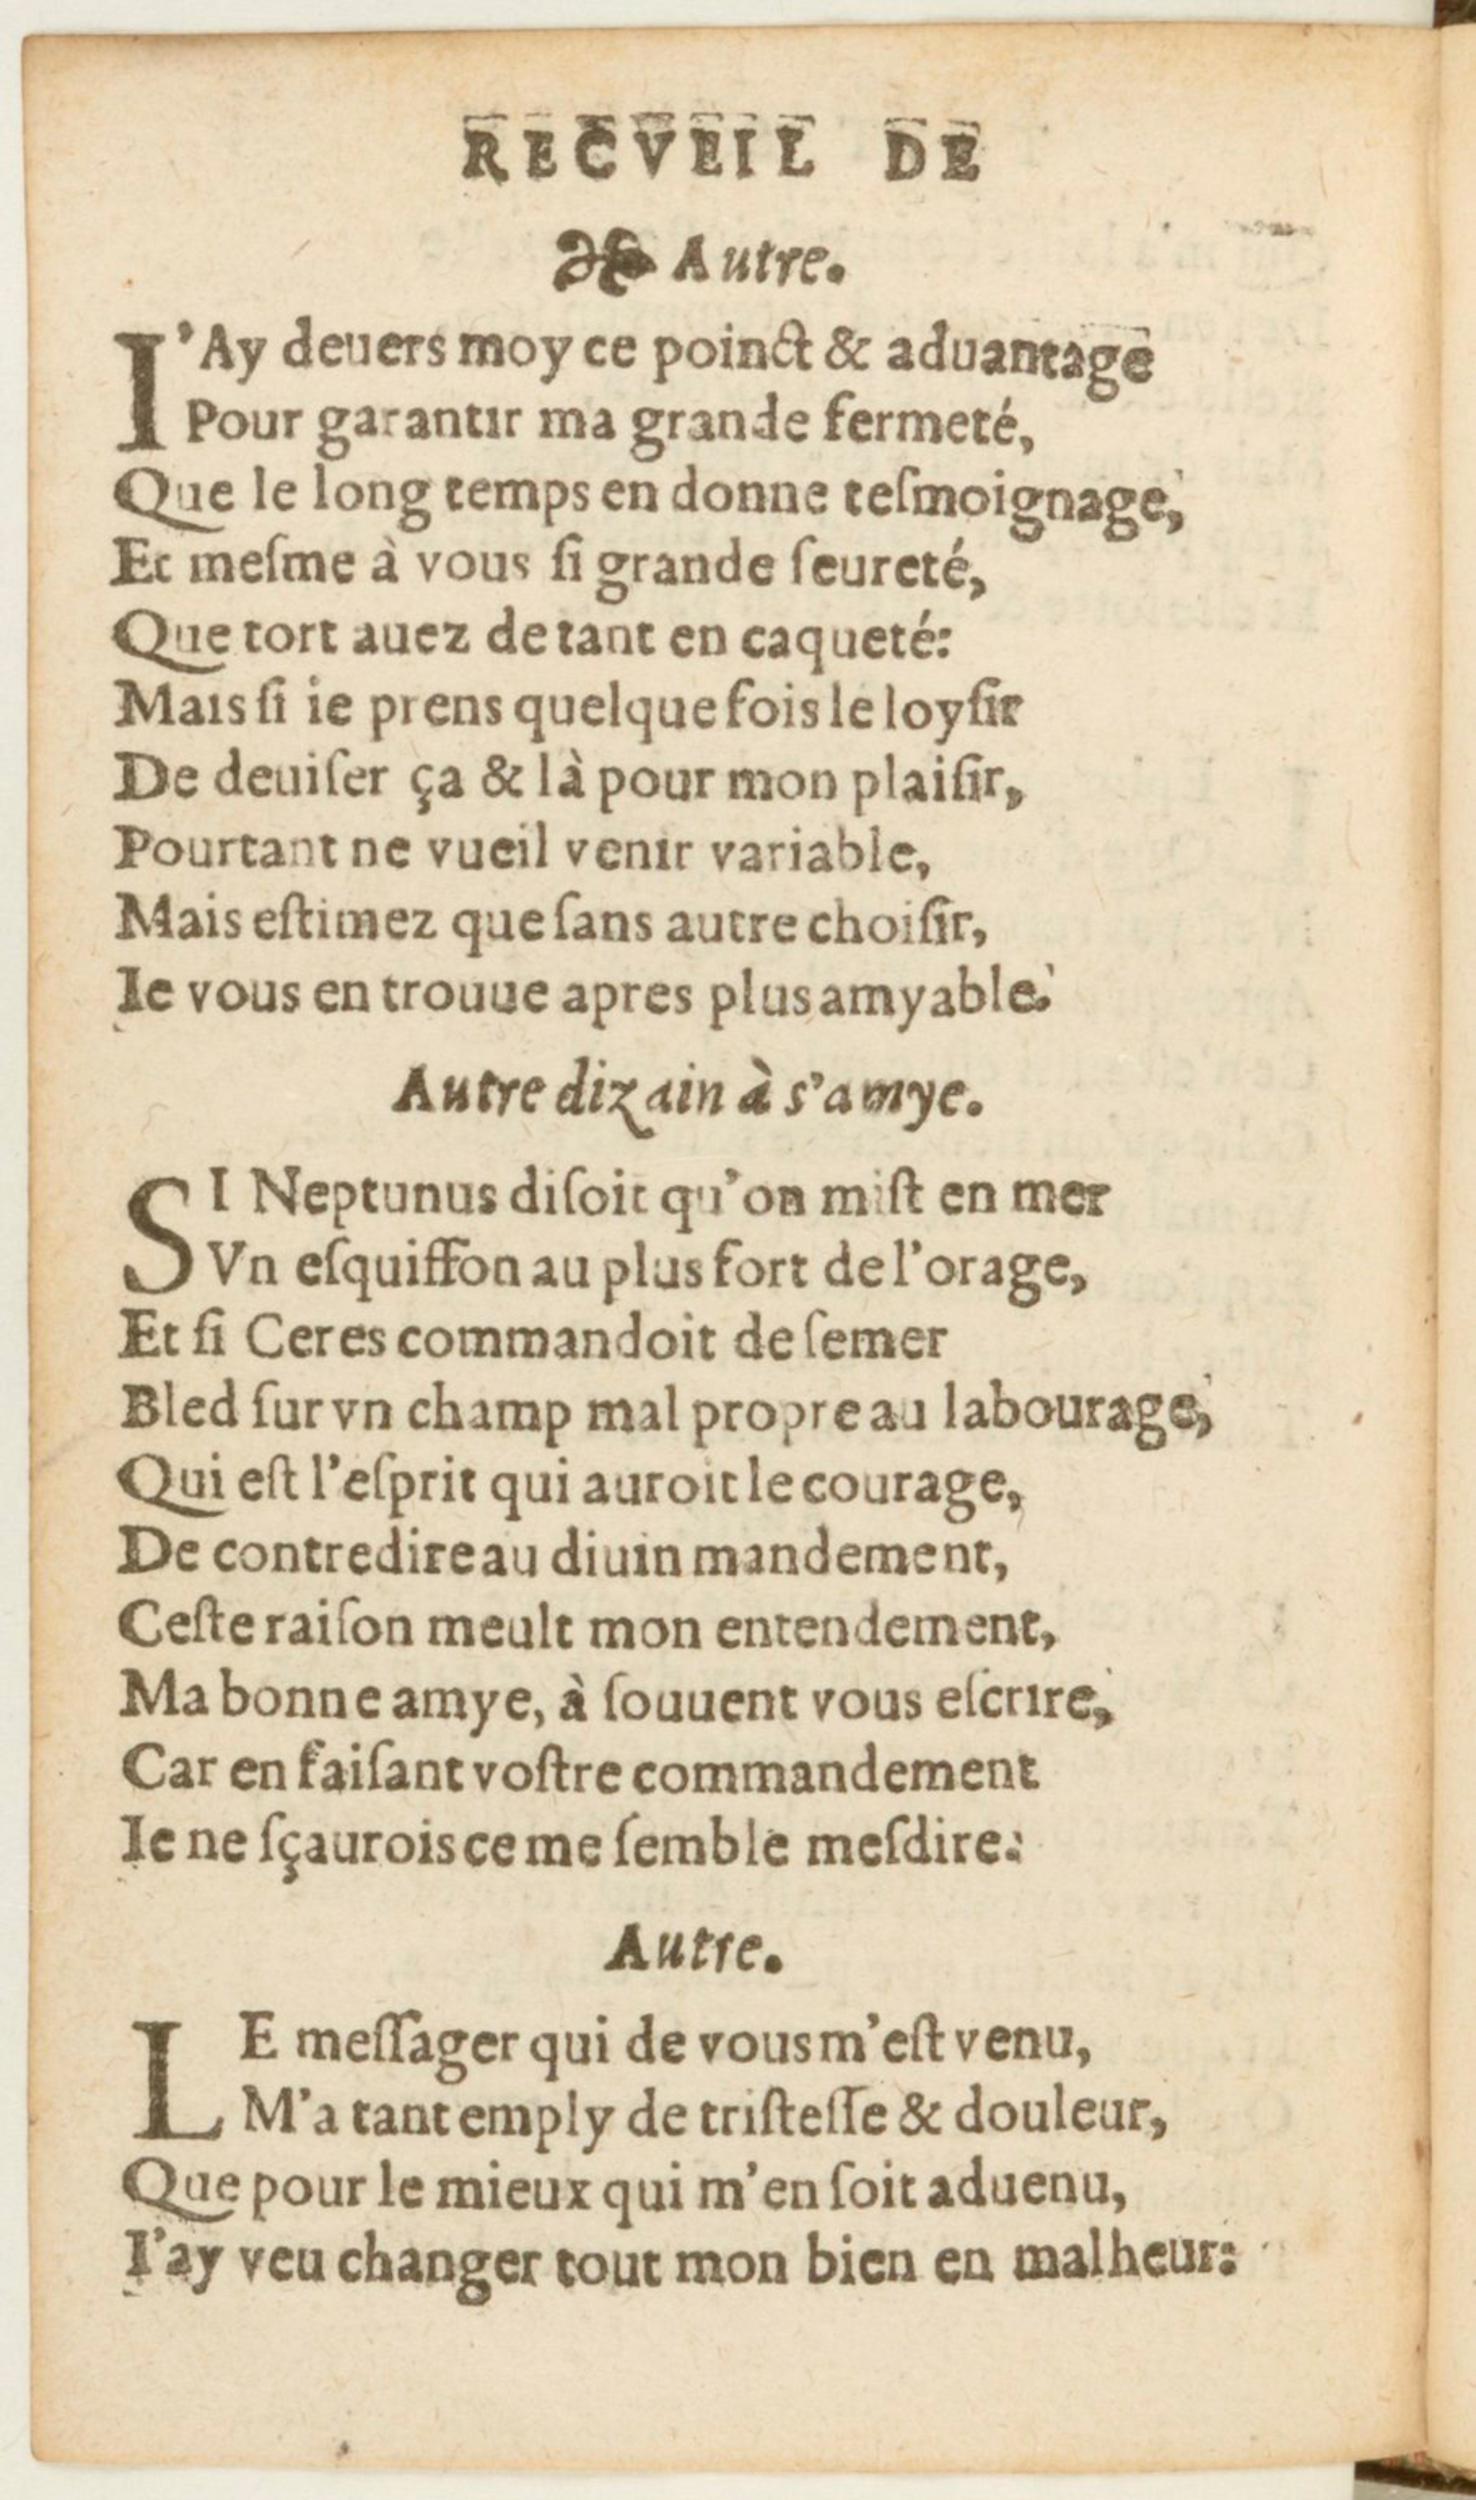 RECVEIL DE
❧ Autre.
I'Ay deuers moy ce poinct & aduantage
Pour garantir ma grande fermeté,
Que le long temps en donne teſmoignage,
Et meſme à vous ſi grande ſeureté,
Que tort auez de tant en caqueté:
Mais ſi ie prens quelque fois le loyſir
De deuiſer ça & là pour mon plaiſir,
Pourtant ne vueil venir variable,
Mais eſtimez que ſans autre choiſir,
Ie vous en trouue apres plus amyable.
Autre dizain à s'amye.
SI Neptunus diſoit qu'on miſt en mer
Vn eſquiffon au plus fort de l'orage,
Et ſi Ceres commandoit de ſemer
Bled ſur vn champ mal propre au labourage,
Qui eſt l'eſprit qui auroit le courage,
De contredire au diuin mandement,
Ceſte raiſon meult mon entendement,
Ma bonne amye, à ſouuent vous eſcrire,
Car en faiſant voſtre commandement
Ie ne ſçaurois ce me ſemble meſdire.
Autre.
LE meſſager qui de vous m'eſt venu,
M'a tant emply de triſteſſe & douleur,
Que pour le mieux qui m'en ſoit aduenu,
I'ay veu changer tout mon bien en malheur: